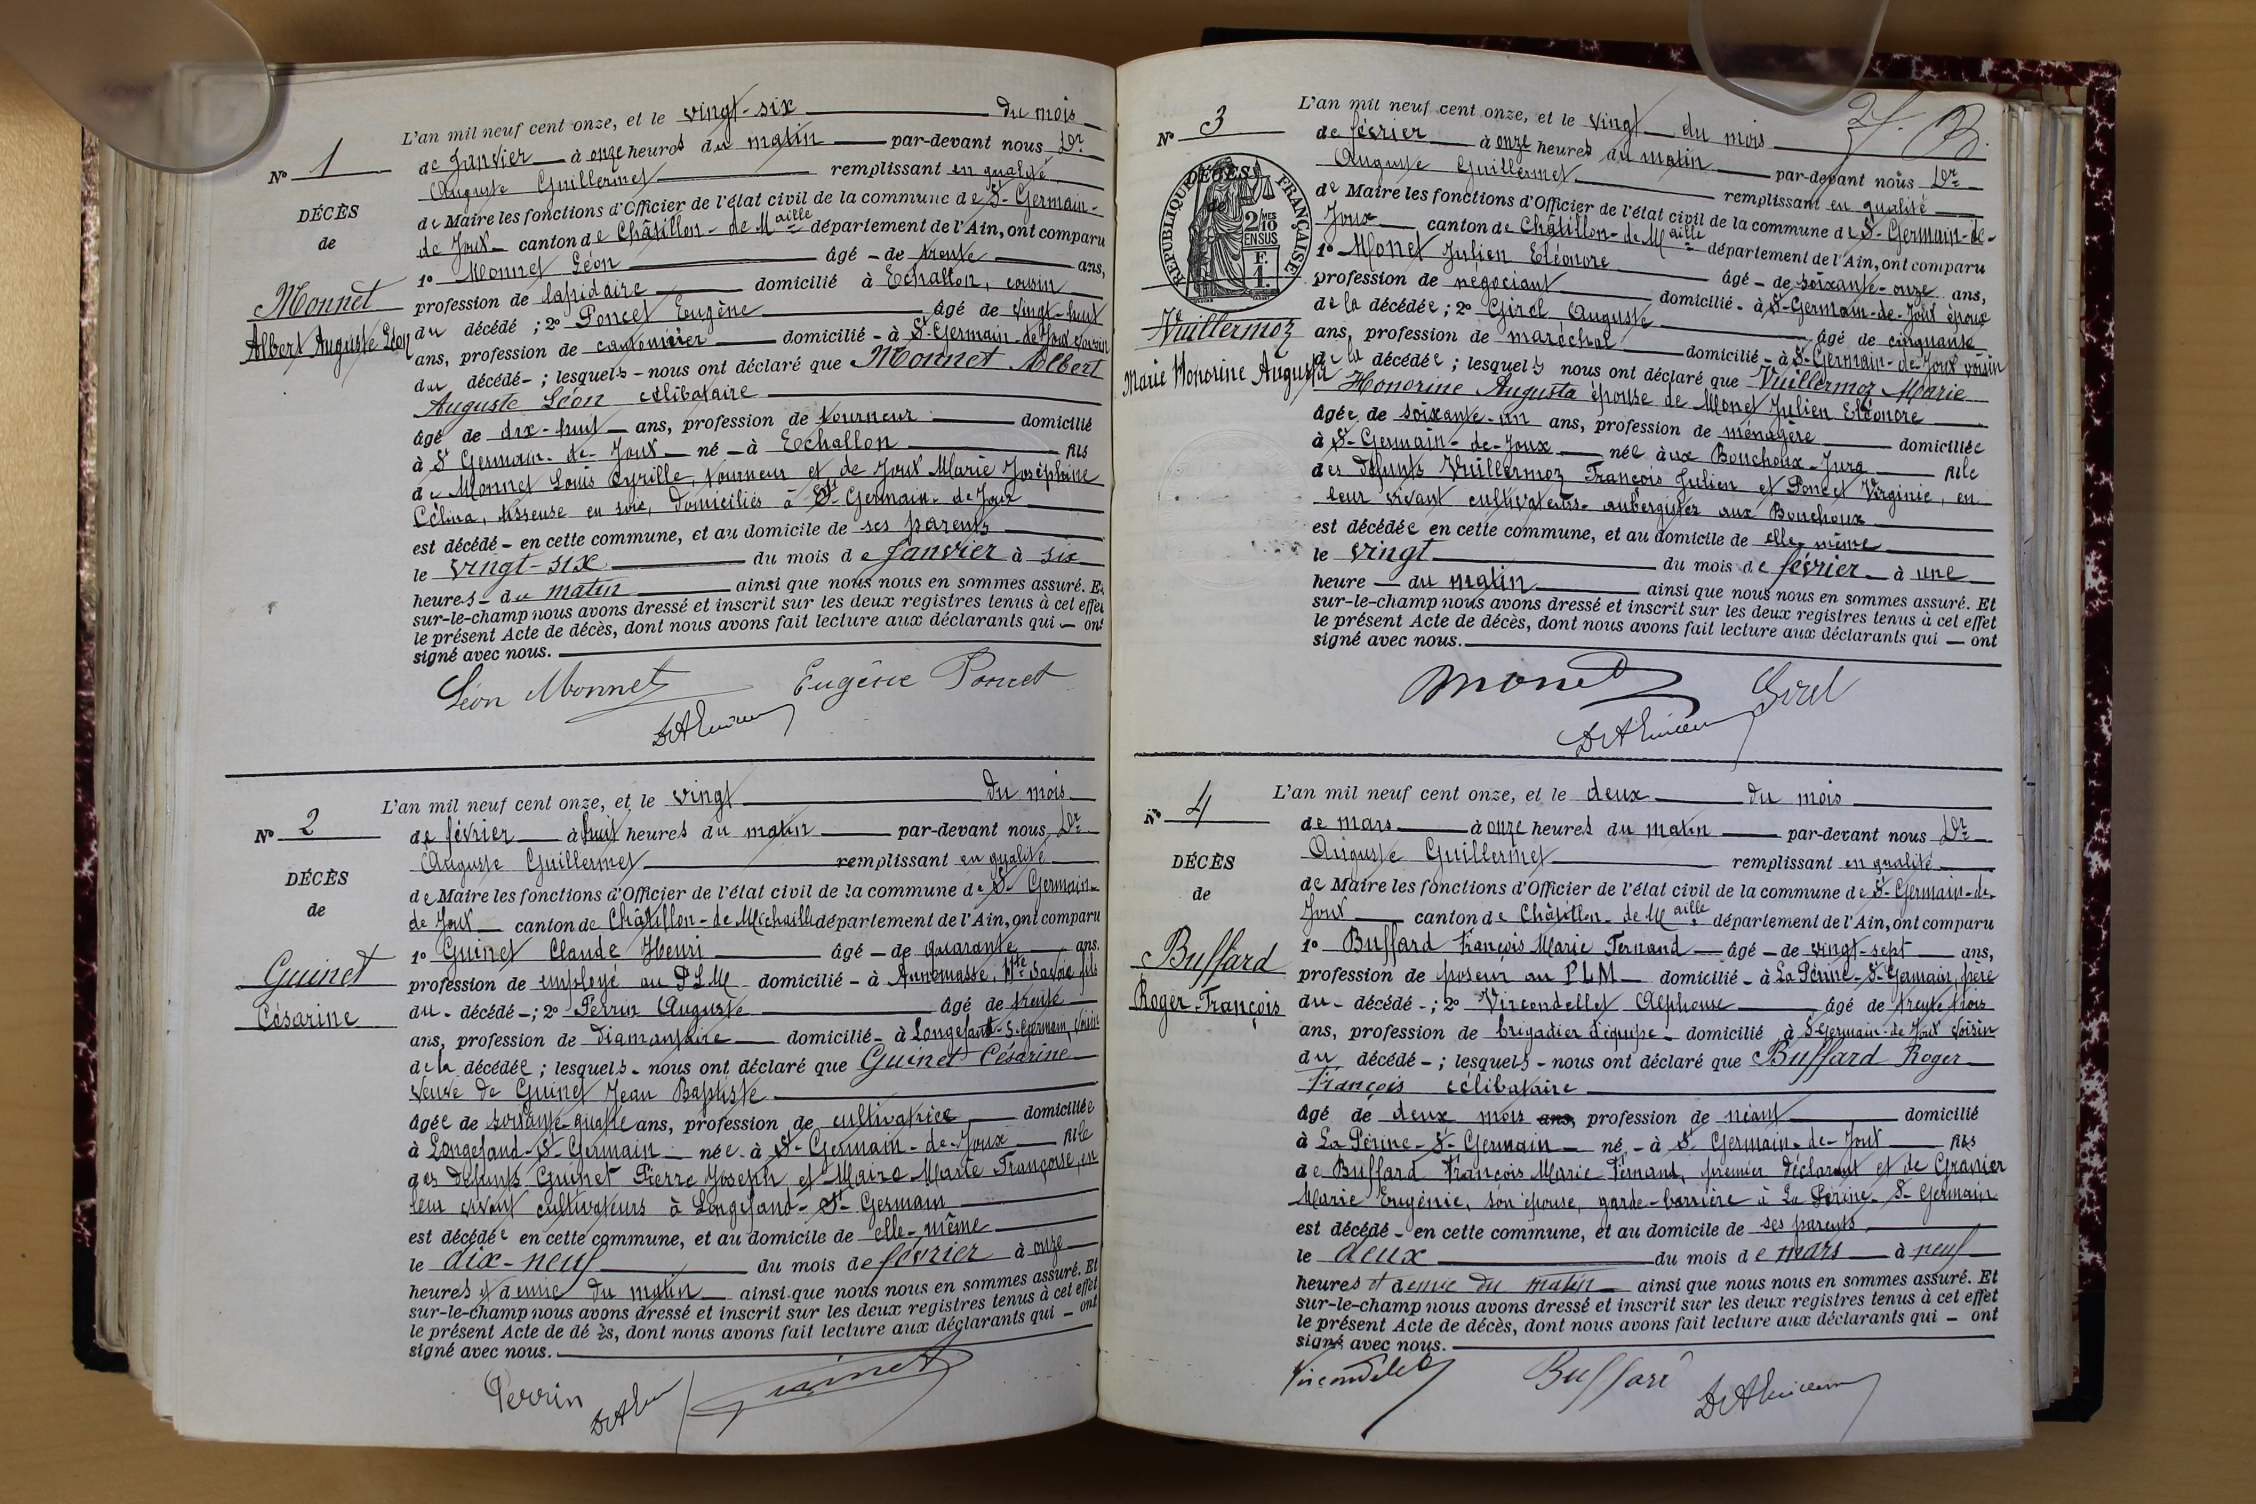 L'an mil neuf cent onze, et le vingt-six du mois
N° 1
de Janvier à onze heures du matin par-devant nous Dr
Auguste Guillermet remplissant en qualité
DÉCÈS
de Maire les fonctions d'Officier de l'état civil de la commune de St-Germain-
de
de Joux canton de Châtillon-de-Maille département de l'Ain, ont comparu
1° Monnet Léon âgé de trente ans,
Monnet
profession de lapidaire domicilié à Echallon, cousin
Albert Auguste Léon
du décédé ; 2° Poncet Eugène âgé de vingt-huit
ans, profession de cantonnier domicilié à St-Germain-de-Joux voisin
du décédé ; lesquels nous ont déclaré que Monnet Albert
Auguste Léon célibataire
âgé de dix-huit ans, profession de tourneur domicilié
à St Germain-de-Joux né à Echallon fils
de Monnet Louis Cyrille, tourneur et de Joux Marie Joséphine
Célina, tisseuse en soie, domiciliés à St-Germain-de-Joux
est décédé en cette commune, et au domicile de ses parents
le vingt-six du mois de Janvier à six
heures du matin ainsi que nous nous en sommes assuré. Et
sur-le-champ nous avons dressé et inscrit sur les deux registres tenus à cet effet
le présent Acte de décès, dont nous avons fait lecture aux déclarants qui ont
signé avec nous.
Léon Monnet Eugène Poncet
L'an mil neuf cent onze, et le vingt du mois
N° 2
de février à huit heures du matin par-devant nous Dr
Auguste Guillermet remplissant en qualité
DÉCÈS
de Maire les fonctions d'Officier de l'état civil de la commune de St-Germain-
de
de Joux canton de Châtillon-de-Michaille département de l'Ain, ont comparu
1° Guinet Claude Henri âgé de quarante ans.
Guinet
profession de employé au PLM domicilié à Annemasse, Hte Savoie fils
Césarine
du décédé ; 2° Perrin Auguste âgé de trente
ans, profession de diamantaire domicilié à Longefand-St-Germain, voisin
de la décédée ; lesquels nous ont déclaré que Guinet Césarine
veuve de Guinet Jean Baptiste
âgée de soixante-quatre ans, profession de cultivatrice domiciliée
à Longefand-St-Germain née à St-Germain-de-Joux fille
des défunts Guinet Pierre Joseph et Maire Marie Françoise, en
leur vivant cultivateurs à Longefand-St-Germain
est décédée en cette commune, et au domicile de elle-même
le dix-neuf du mois de février à onze
heures et demie du matin ainsi que nous nous en sommes assuré. Et
sur-le-champ nous avons dressé et inscrit sur les deux registres tenus à cet effet
le présent Acte de décès, dont nous avons fait lecture aux déclarants qui ont
signé avec nous.
Perrin Guinet
L'an mil neuf cent onze, et le vingt du mois
N° 3
de février à onze heures du matin par-devant nous Dr
Auguste Guillermet remplissant en qualité
DÉCÈS
de
RÉPUBLIQUE FRANÇAISE
2/10 MES
EN SUS
F.
1.
de Maire les fonctions d'Officier de l'état civil de la commune de St-Germain-de-
Joux canton de Châtillon-de-Maille département de l'Ain, ont comparu
1° Monet Julien Eléonore âgé de soixante-onze ans,
profession de négociant domicilié à St-Germain-de-Joux époux
de la décédée ; 2° Girel Auguste âgé de cinquante
Vuillermoz
ans, profession de maréchal domicilié à St-Germain-de-Joux voisin
Marie Honorine Augusta
de la décédée ; lesquels nous ont déclaré que Vuillermoz Marie
Honorine Augusta épouse de Monet Julien Eléonore
âgée de soixante-un ans, profession de ménagère domiciliée
à St-Germain-de-Joux née aux Bouchoux-Jura fille
des défunts Vuillermoz François Julien et Poncet Virginie, en
leur vivant cultivateurs-aubergistes aux Bouchoux
est décédée en cette commune, et au domicile de elle-même
le vingt du mois de février à une
heure du matin ainsi que nous nous en sommes assuré. Et
sur-le-champ nous avons dressé et inscrit sur les deux registres tenus à cet effet
le présent Acte de décès, dont nous avons fait lecture aux déclarants qui ont
signé avec nous.
Monet Girel
L'an mil neuf cent onze, et le deux du mois
N° 4
de mars à onze heures du matin par-devant nous Dr
Auguste Guillermet remplissant en qualité
DÉCÈS
de Maire les fonctions d'Officier de l'état civil de la commune de St-Germain-de-
de
Joux canton de Châtillon-de-Maille département de l'Ain, ont comparu
1° Buffard François Marie Fernand âgé de vingt-sept ans,
Buffard
profession de poseur au PLM domicilié à La Périne-St-Germain, père
Roger François
du décédé ; 2° Vircondellet Alphonse âgé de trente trois
ans, profession de brigadier d'équipe domicilié à St-Germain-de-Joux voisin
du décédé ; lesquels nous ont déclaré que Buffard Roger
François célibataire
âgé de deux mois ans, profession de néant domicilié
à La Périne-St-Germain né à St Germain-de-Joux fils
de Buffard François Marie Fernand, premier déclarant et de Granier
Marie Eugénie, son épouse, garde-barrière à La Périne-St-Germain
est décédé en cette commune, et au domicile de ses parents
le deux du mois de mars à neuf
heures et demie du matin ainsi que nous nous en sommes assuré. Et
sur-le-champ nous avons dressé et inscrit sur les deux registres tenus à cet effet
le présent Acte de décès, dont nous avons fait lecture aux déclarants qui ont
signé avec nous.
Vircondellet Buffard